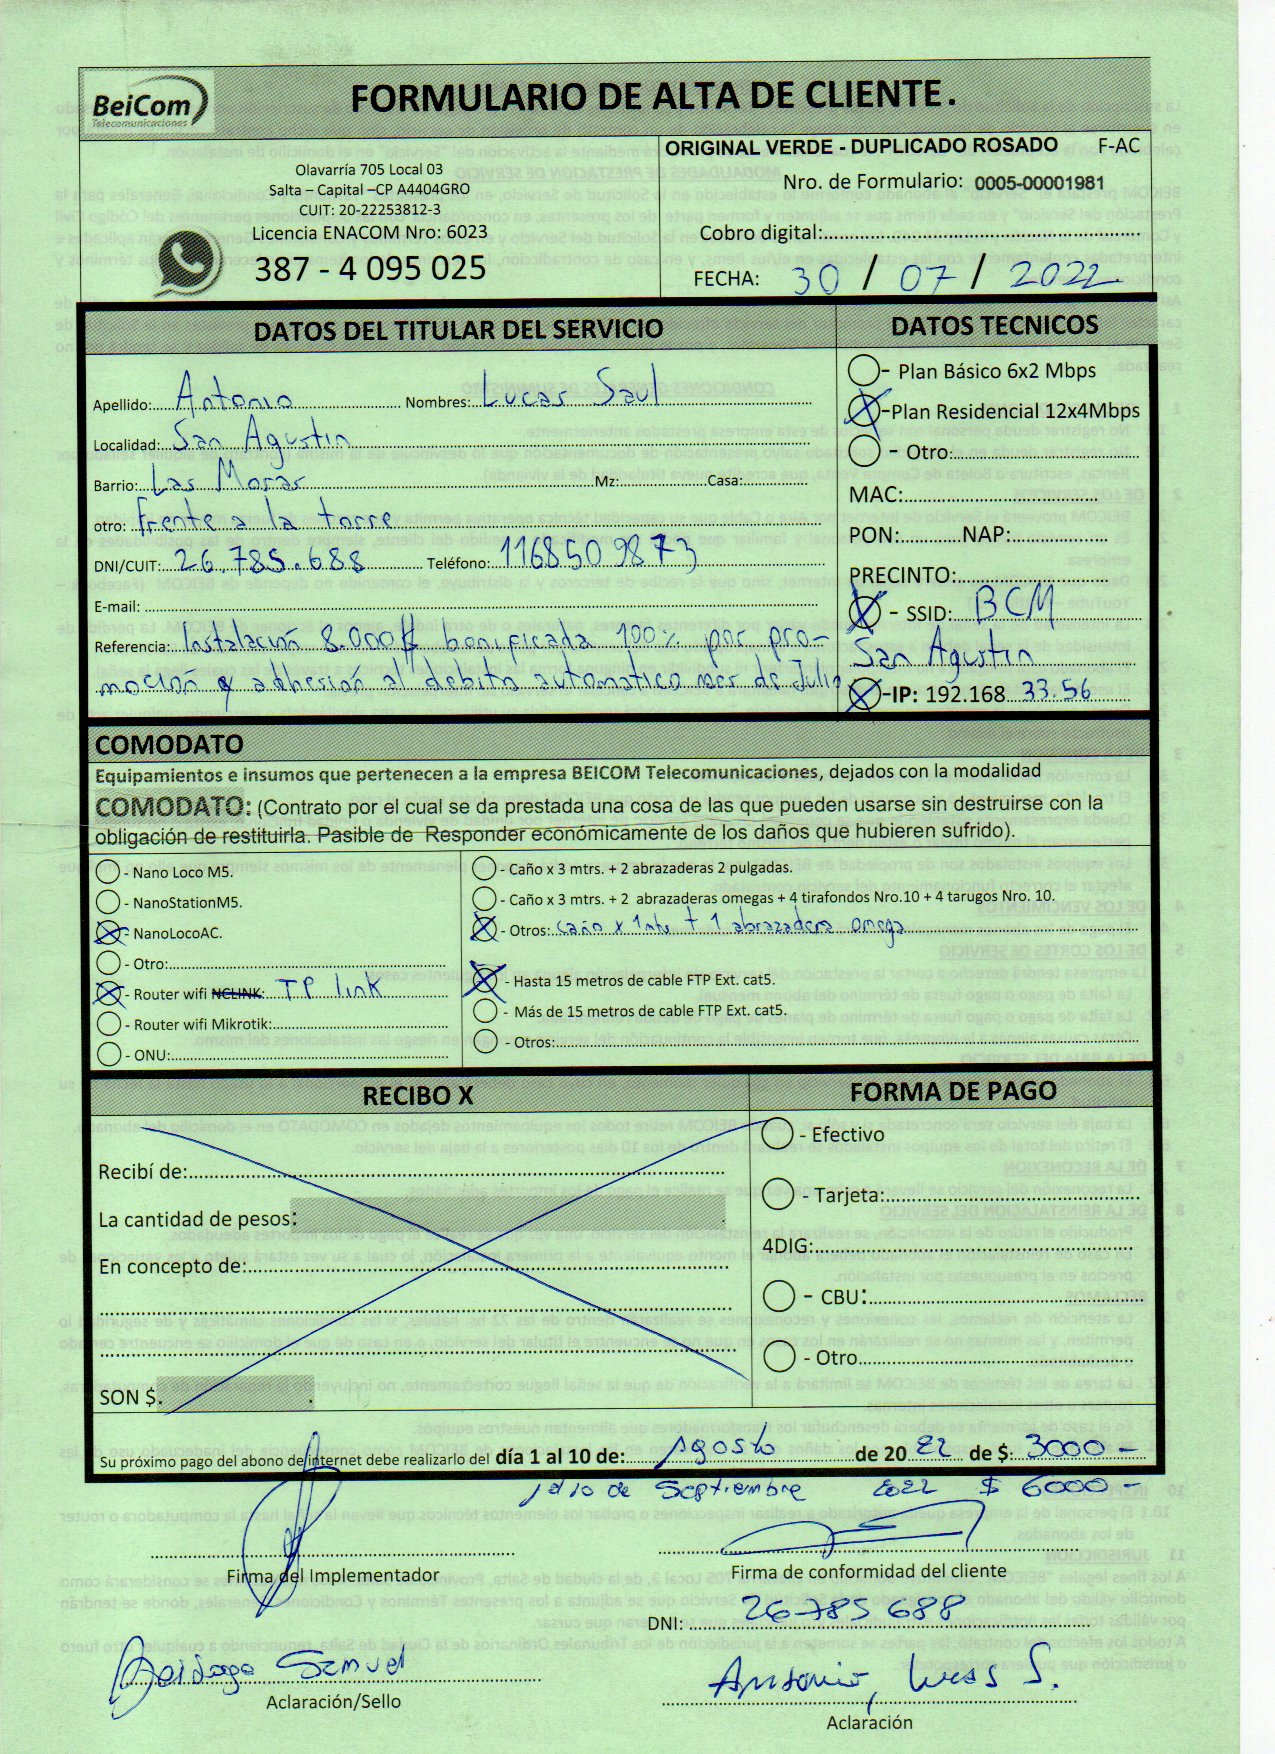 BeiCom
Telecomunicaciones
FORMULARIO DE ALTA DE CLIENTE.
Olavarría 705 Local 03
Salta – Capital –CP A4404GRO
CUIT: 20-22253812-3
Licencia ENACOM Nro: 6023
387 - 4 095 025
ORIGINAL VERDE - DUPLICADO ROSADO F-AC
Nro. de Formulario: 0005-00001981
Cobro digital:
FECHA: 30 / 07 / 2022
DATOS DEL TITULAR DEL SERVICIO
Apellido: Antonio Nombres: Lucas Saul
Localidad: San Agustin
Barrio: Las Moras Mz: Casa:
otro: Frente a la torre
DNI/CUIT: 26.785.688 Teléfono: 1168509873
E-mail:
Referencia: Instalación 8.000$ bonificada 100% por pro-
moción y adhesión al debito automatico mes de Julio
DATOS TECNICOS
- Plan Básico 6x2 Mbps
-Plan Residencial 12x4Mbps
- Otro:
MAC:
PON: NAP:
PRECINTO:
- SSID: BCM
San Agustin
-IP: 192.168 33.56
COMODATO
Equipamientos e insumos que pertenecen a la empresa BEICOM Telecomunicaciones, dejados con la modalidad
COMODATO: (Contrato por el cual se da prestada una cosa de las que pueden usarse sin destruirse con la
obligación de restituirla. Pasible de Responder económicamente de los daños que hubieren sufrido).
- Nano Loco M5.
- NanoStationM5.
- NanoLocoAC.
- Otro:
- Router wifi NCLINK: TP link
- Router wifi Mikrotik:
- ONU:
- Caño x 3 mtrs. + 2 abrazaderas 2 pulgadas.
- Caño x 3 mtrs. + 2 abrazaderas omegas + 4 tirafondos Nro.10 + 4 tarugos Nro. 10.
- Otros: caño x 1 mts + 1 abrazadera omega
- Hasta 15 metros de cable FTP Ext. cat5.
- Más de 15 metros de cable FTP Ext. cat5.
- Otros:
RECIBO X
Recibí de:
La cantidad de pesos:
En concepto de:
SON $.
FORMA DE PAGO
- Efectivo
- Tarjeta:
4DIG:
- CBU:
- Otro
Su próximo pago del abono de internet debe realizarlo del día 1 al 10 de: Agosto de 20 22 de $: 3000 -
1 al 10 de Septiembre 2022 $ 6000 -
Firma del Implementador
Firma de conformidad del cliente
DNI: 26785688
Samuel
Aclaración/Sello
Antonio, Lucas S.
Aclaración